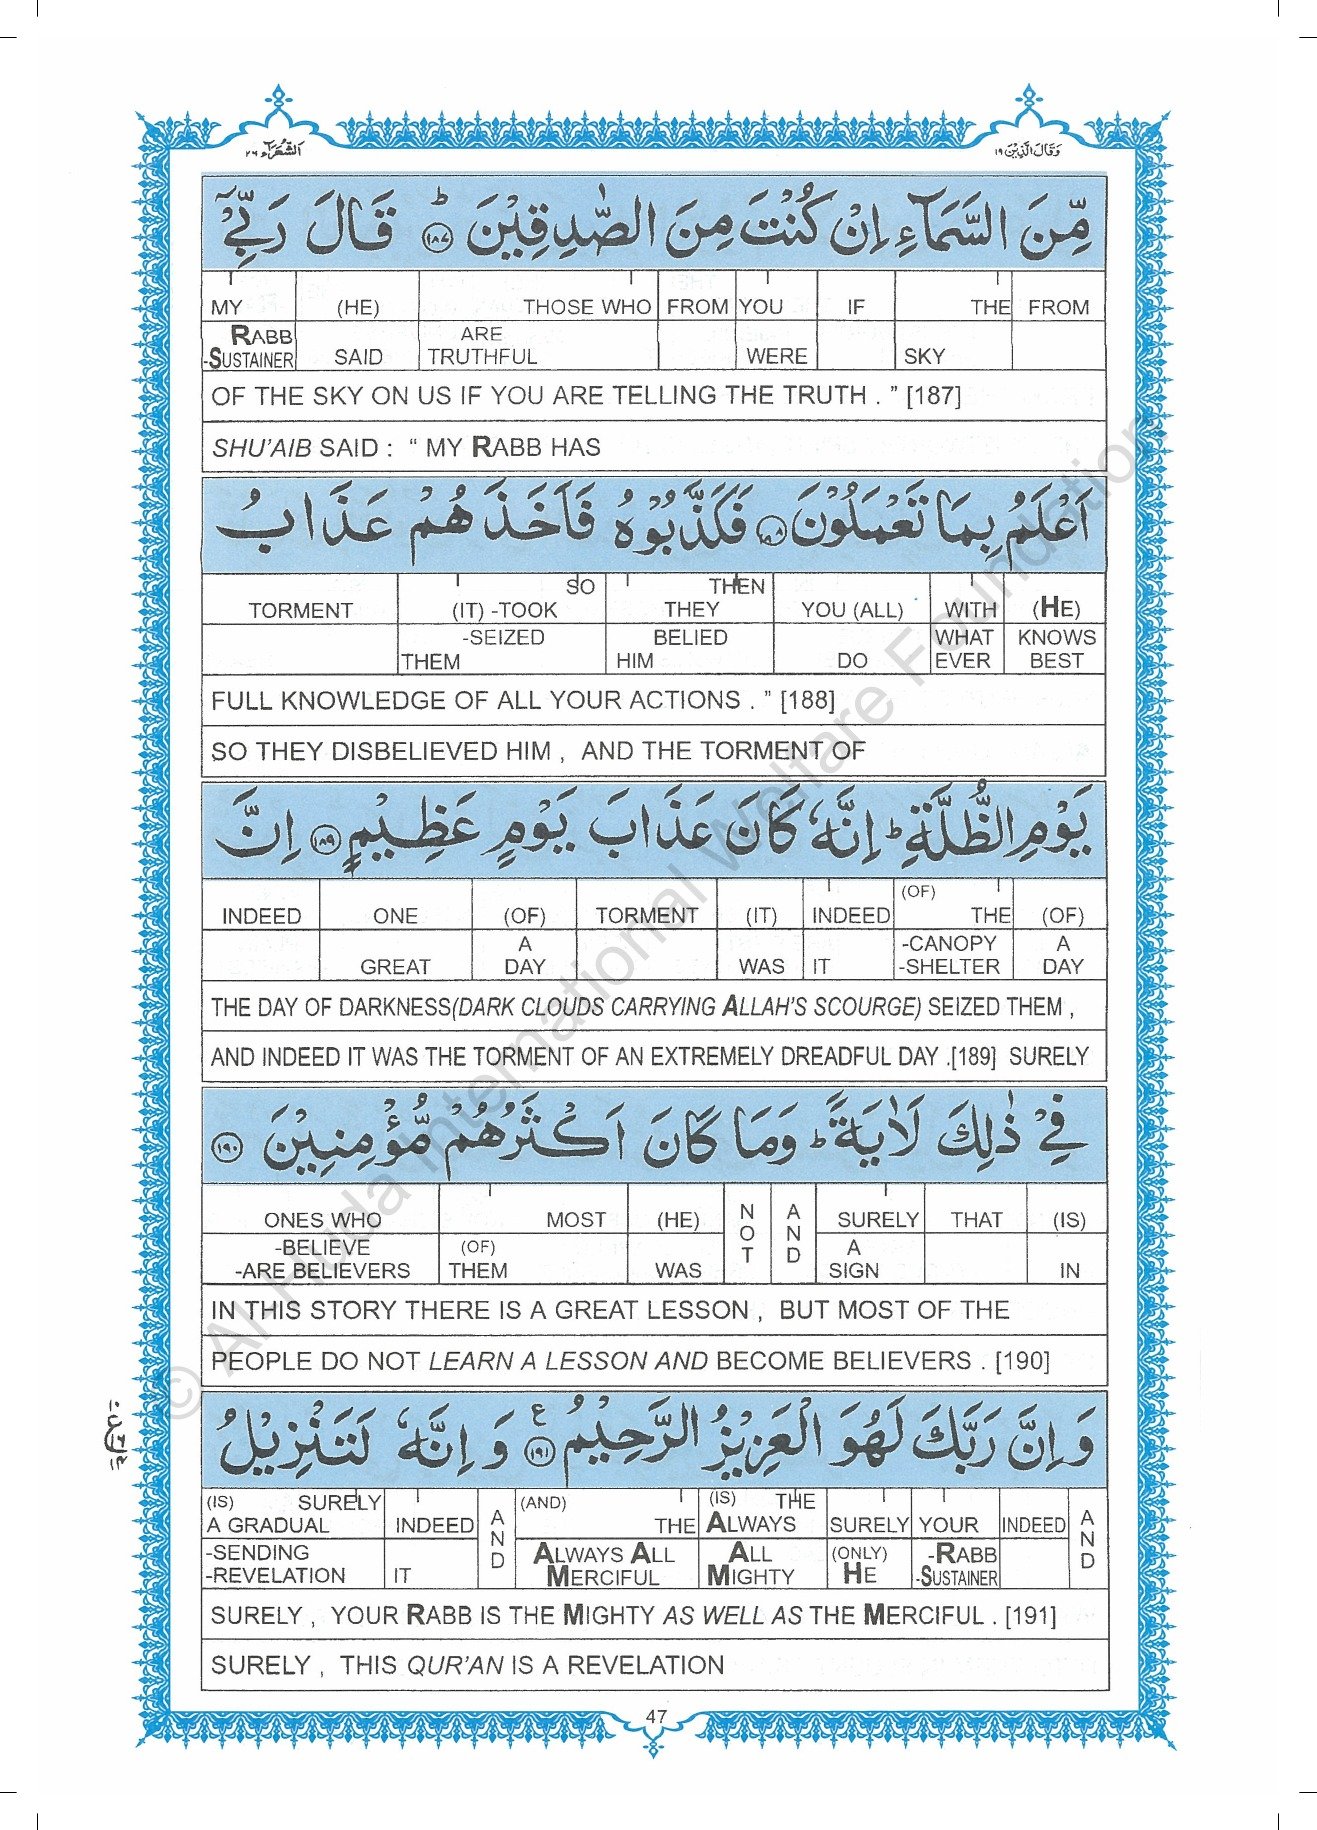 اَلشُّعَرَآء ٢٦
وَقَالَ الَّذِيْنَ ١٩
مِّنَ السَّمَآءِ اِنْ كُنْتَ مِنَ الصّٰدِقِيْنَ ؕ ﴿١٨٧﴾ قَالَ رَبِّيْٓ
MY (HE) THOSE WHO FROM YOU IF THE FROM
RABB ARE
-SUSTAINER SAID TRUTHFUL WERE SKY
OF THE SKY ON US IF YOU ARE TELLING THE TRUTH . ” [187]
SHU’AIB SAID : “ MY RABB HAS
اَعْلَمُ بِمَا تَعْمَلُوْنَ ﴿١٨٨﴾ فَكَذَّبُوْهُ فَاَخَذَهُمْ عَذَابُ
SO THEN
TORMENT (IT) -TOOK THEY YOU (ALL) WITH (HE)
-SEIZED BELIED WHAT KNOWS
THEM HIM DO EVER BEST
FULL KNOWLEDGE OF ALL YOUR ACTIONS . ” [188]
SO THEY DISBELIEVED HIM , AND THE TORMENT OF
يَوْمِ الظُّلَّةِ ؕ اِنَّهٗ كَانَ عَذَابَ يَوْمٍ عَظِيْمٍ ﴿١٨٩﴾ اِنَّ
(OF)
INDEED ONE (OF) TORMENT (IT) INDEED THE (OF)
A -CANOPY A
GREAT DAY WAS IT -SHELTER DAY
THE DAY OF DARKNESS(DARK CLOUDS CARRYING ALLAH’S SCOURGE) SEIZED THEM ,
AND INDEED IT WAS THE TORMENT OF AN EXTREMELY DREADFUL DAY .[189] SURELY
فِيْ ذٰلِكَ لَاٰيَةً ؕ وَمَا كَانَ اَكْثَرُهُمْ مُّؤْمِنِيْنَ ﴿١٩٠﴾
ONES WHO MOST (HE) NOT AND SURELY THAT (IS)
-BELIEVE (OF) A
-ARE BELIEVERS THEM WAS SIGN IN
IN THIS STORY THERE IS A GREAT LESSON , BUT MOST OF THE
PEOPLE DO NOT LEARN A LESSON AND BECOME BELIEVERS . [190]
وَاِنَّ رَبَّكَ لَهُوَ الْعَزِيْزُ الرَّحِيْمُ ﴿١٩١﴾ ع وَاِنَّهٗ لَتَنْزِيْلُ
(IS) SURELY (AND) (IS) THE
A GRADUAL INDEED AND THE ALWAYS SURELY YOUR INDEED AND
-SENDING ALWAYS ALL ALL (ONLY) -RABB
-REVELATION IT MERCIFUL MIGHTY HE -SUSTAINER
SURELY , YOUR RABB IS THE MIGHTY AS WELL AS THE MERCIFUL . [191]
SURELY , THIS QUR’AN IS A REVELATION
47
© Al-Huda International Welfare Foundation